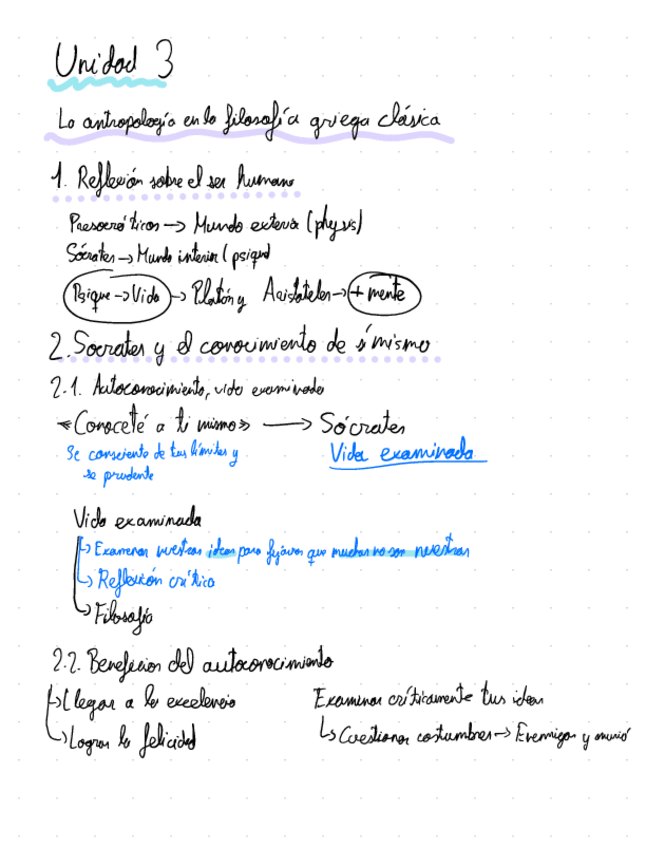 Unidad 3
La antropología en la filosofía griega clásica
1. Reflexión sobre el ser humano
Presocráticos → Mundo exterior (physis)
Sócrates → Mundo interior (psique)
Psique → Vida → Platón y Aristóteles → + mente
2. Socrates y el conocimiento de sí mismo
2.1. Autoconocimiento, vida examinada
«Conoceté a ti mismo» → Sócrates
Se consciente de tus límites y
se prudente
Vida examinada
Vida examinada
↳ Examinar nuestras ideas para fijarnos que muchas no son nuestras
↳ Reflexión crítica
↳ Filosofía
2.2. Beneficios del autoconocimiento
↳ Llegar a la excelencia
↳ Lograr la felicidad
Examinar críticamente tus ideas
↳ Cuestionar costumbres → Enemigos y murió